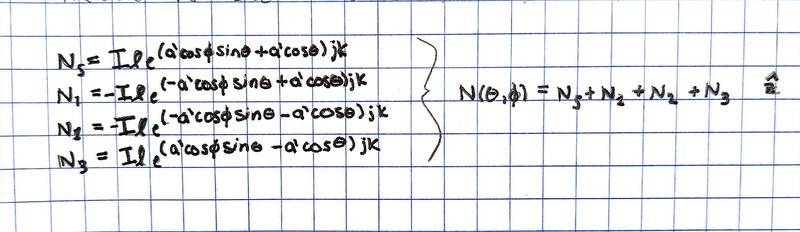 N₅ = Iℓe^(a'cosφsinθ + a'cosθ)jk
N₁ = -Iℓe^(-a'cosφsinθ + a'cosθ)jk
N₂ = -Iℓe^(-a'cosφsinθ - a'cosθ)jk
N₃ = Iℓe^(a'cosφsinθ - a'cosθ)jk
} N(θ,φ) = N₅ + N₂ + N₂ + N₃ ẑ